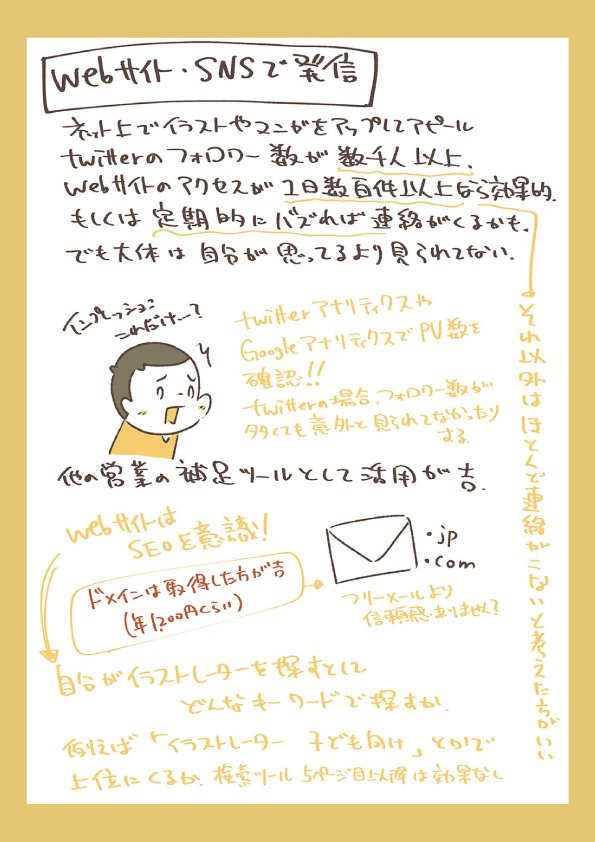 Webサイト・SNSで発信
ネット上でイラストやマンガをアップしてアピール
twitterのフォロワー数が数千人以上、
Webサイトのアクセスが1日数百件以上なら効果的。
もしくは定期的にバズれば連絡がくるかも。
でも大体は自分が思ってるより見られてない。
それ以外はほとんど連絡がこないと考えた方がいい
インプレッション
これだけ…?
twitterアナリティクスや
GoogleアナリティクスでPV数を
確認!!
twitterの場合、フォロワー数が
多くても意外と見られてなかったり
する。
他の営業の補足ツールとして活用が吉。
Webサイトは
SEOを意識!
ドメインは取得した方が吉
(年1,200円くらい)
・jp
・com
フリーメールより
信頼感ありません?
自分がイラストレーターを探すとして
どんなキーワードで探すか。
例えば「イラストレーター 子ども向け」とかで
上位にくるか。検索ツール5ページ目以降は効果なし